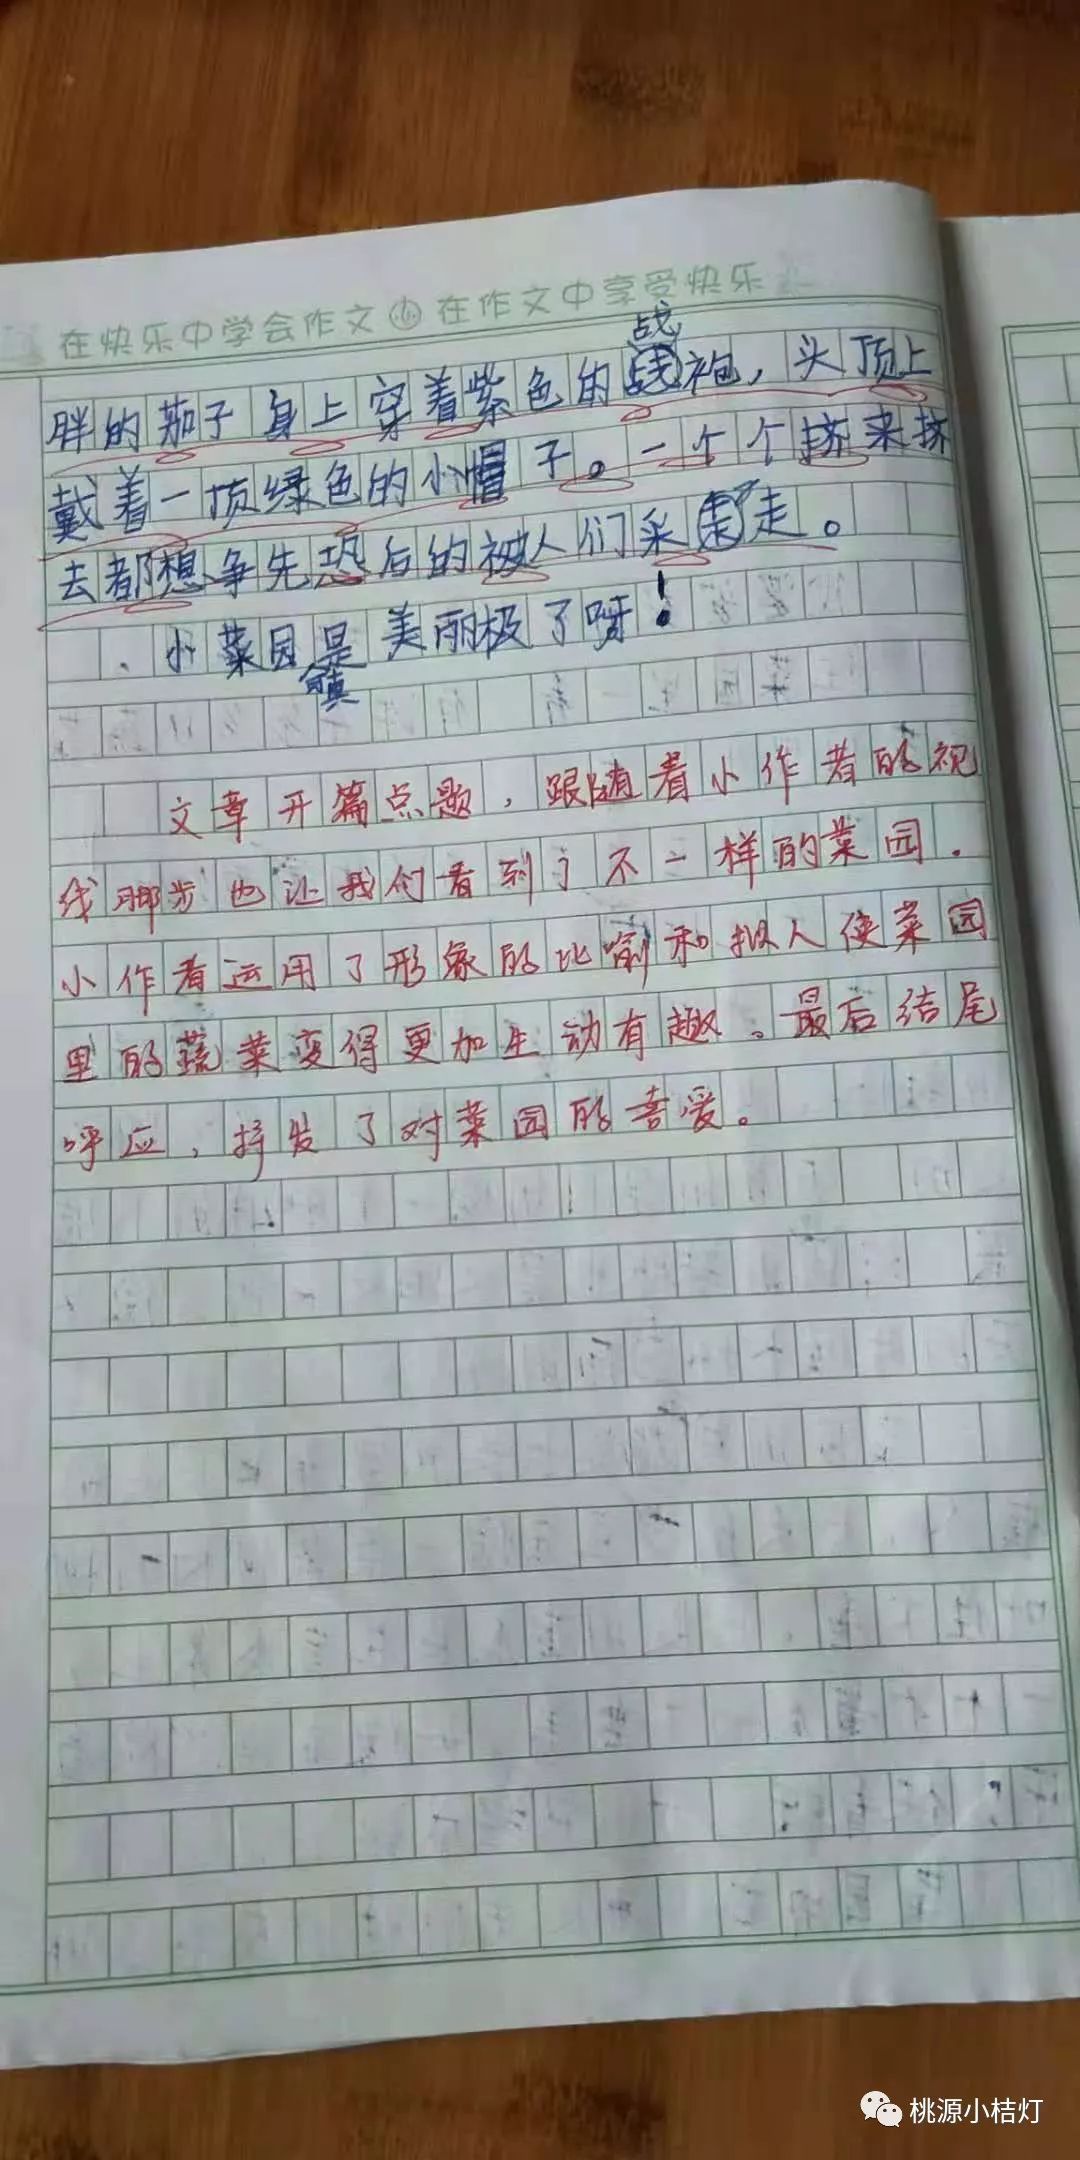 在快乐中学会作文 在作文中享受快乐
战
胖的茄子身上穿着紫色的战袍，头顶上
戴着一顶绿色的小帽子。一个个挤来挤
去都想争先恐后的被人们采走。
小菜园是美丽极了呀！
真
文章开篇点题，跟随着小作者的视
线脚步也让我们看到了不一样的菜园.
小作者运用了形象的比喻和拟人使菜园
里的蔬菜变得更加生动有趣。最后结尾
呼应，抒发了对菜园的喜爱。
桃源小桔灯